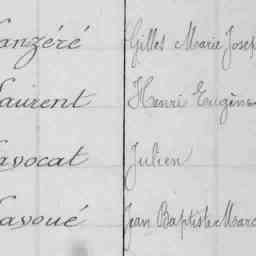 anzéré Gilles Marie Josep
aurent Henri Eugène
avocat Julien
avoué Jean Baptiste Marc